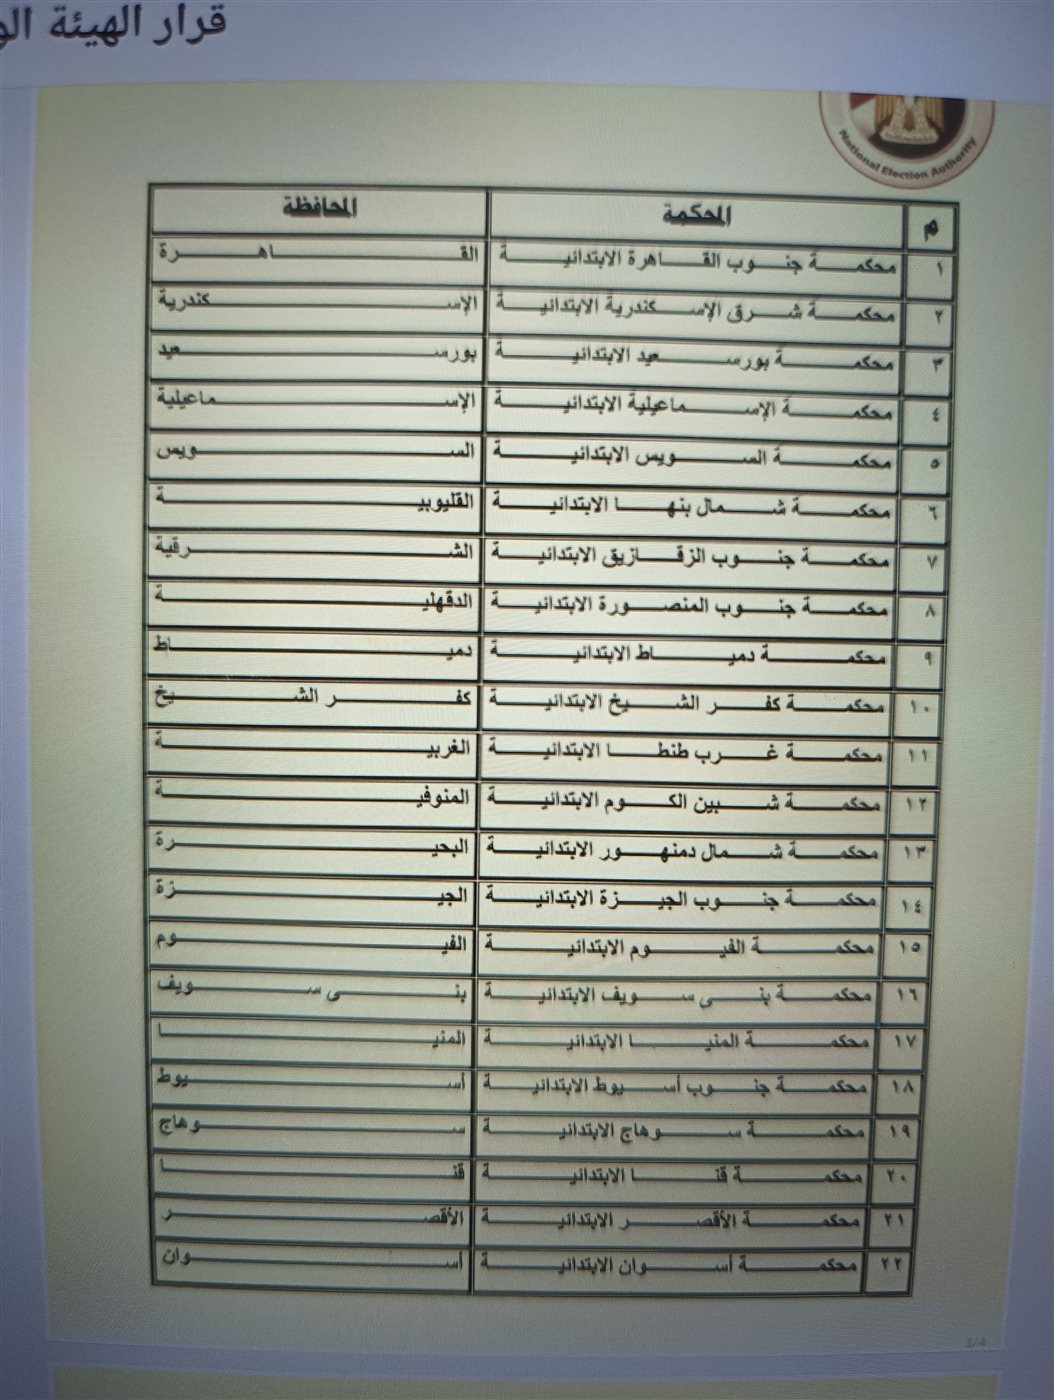 قرار الهيئة
National Election Authority
م المحكمة المحافظة
١ محكمة جنوب القاهرة الابتدائية القاهرة
٢ محكمة شرق الإسكندرية الابتدائية الإسكندرية
٣ محكمة بورسعيد الابتدائية بورسعيد
٤ محكمة الإسماعيلية الابتدائية الإسماعيلية
٥ محكمة السويس الابتدائية السويس
٦ محكمة شمال بنها الابتدائية القليوبية
٧ محكمة جنوب الزقازيق الابتدائية الشرقية
٨ محكمة جنوب المنصورة الابتدائية الدقهلية
٩ محكمة دمياط الابتدائية دمياط
١٠ محكمة كفر الشيخ الابتدائية كفر الشيخ
١١ محكمة غرب طنطا الابتدائية الغربية
١٢ محكمة شبين الكوم الابتدائية المنوفية
١٣ محكمة شمال دمنهور الابتدائية البحيرة
١٤ محكمة جنوب الجيزة الابتدائية الجيزة
١٥ محكمة الفيوم الابتدائية الفيوم
١٦ محكمة بنى سويف الابتدائية بنى سويف
١٧ محكمة المنيا الابتدائية المنيا
١٨ محكمة جنوب أسيوط الابتدائية أسيوط
١٩ محكمة سوهاج الابتدائية سوهاج
٢٠ محكمة قنا الابتدائية قنا
٢١ محكمة الأقصر الابتدائية الأقصر
٢٢ محكمة أسوان الابتدائية أسوان
3/4